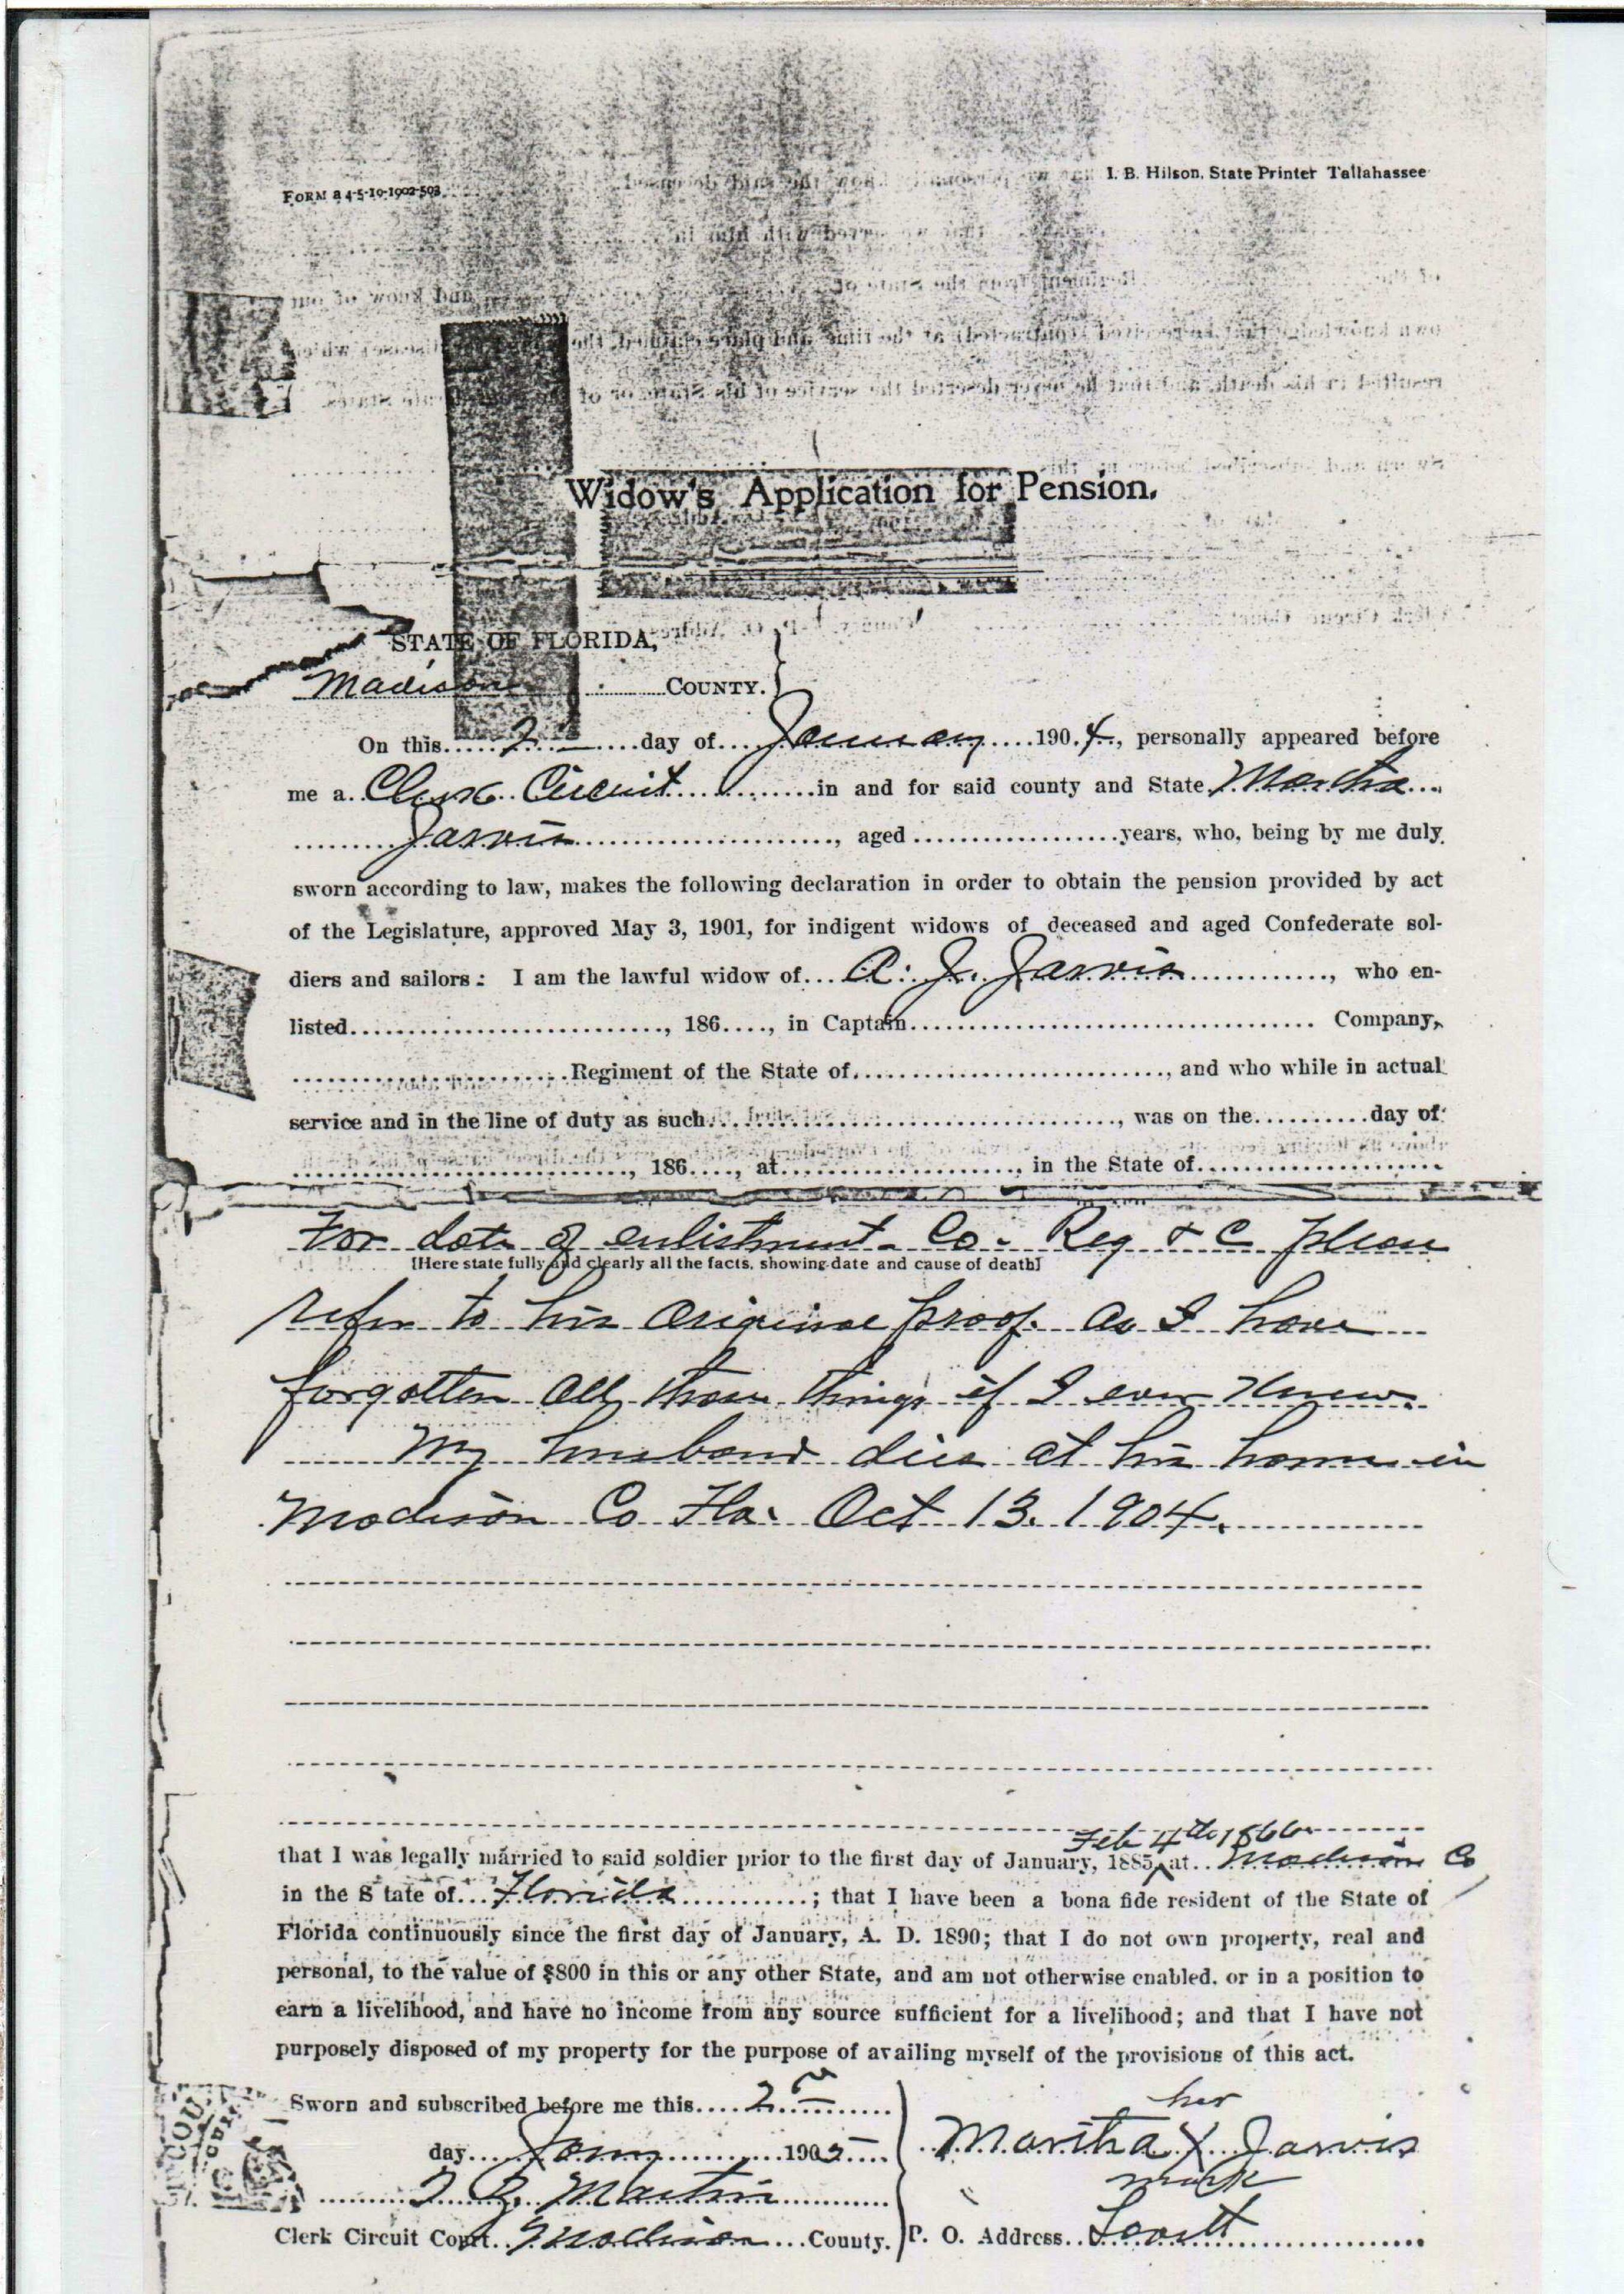 FORM a 4-5-10-1902-503
I. B. Hilson, State Printer Tallahassee
Widow's Application for Pension.
STATE OF FLORIDA,
Madison COUNTY.
On this 2 day of January 1904, personally appeared before
me a Clerk Circuit in and for said county and State Martha
Jarvis, aged years, who, being by me duly
sworn according to law, makes the following declaration in order to obtain the pension provided by act
of the Legislature, approved May 3, 1901, for indigent widows of deceased and aged Confederate sol-
diers and sailors: I am the lawful widow of A. J. Jarvis, who en-
listed, 186, in Captain Company,
Regiment of the State of, and who while in actual
service and in the line of duty as such, was on the day of
, 186, at, in the State of
For date of enlistment - Co - Reg & C please
[Here state fully and clearly all the facts, showing date and cause of death]
refer to his original proof. as I have
forgotten all those things if I ever knew.
My husband died at his home in
Madison Co Fla. Oct 13. 1904.
Feb 4th 1866
that I was legally married to said soldier prior to the first day of January, 1885, at Madison Co
in the State of Florida; that I have been a bona fide resident of the State of
Florida continuously since the first day of January, A. D. 1890; that I do not own property, real and
personal, to the value of $800 in this or any other State, and am not otherwise enabled, or in a position to
earn a livelihood, and have no income from any source sufficient for a livelihood; and that I have not
purposely disposed of my property for the purpose of availing myself of the provisions of this act.
Sworn and subscribed before me this 2
day Jany 1905
her
Martha X Jarvis
mark
Martin
Clerk Circuit Court Madison County.
P. O. Address Lovett